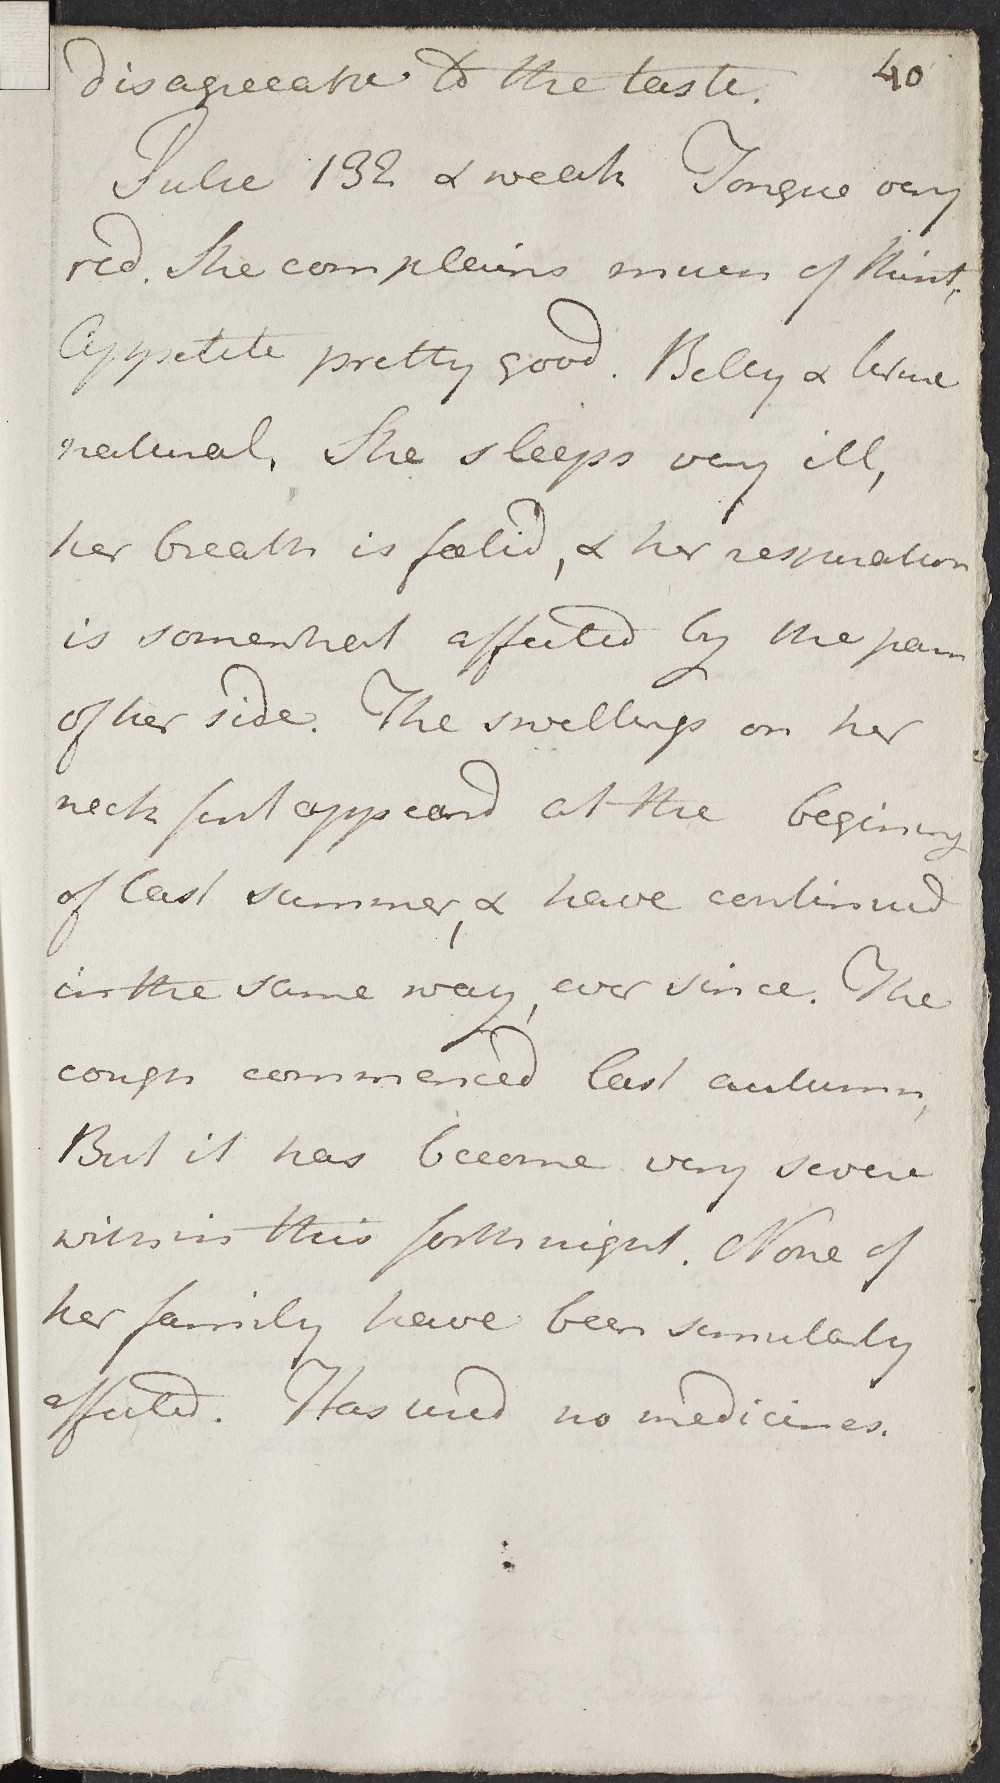 disagreeable to the taste. 40
Pulse 132 & weak Tongue very
red. She complains much of thirst,
Appetite pretty good. Belly & Urine
natural. She sleeps very ill,
her breath is foetid, & her respiration
is somewhat affected by the pain
of her side. The swellings on her
neck first appeard at the begining
of last summer, & have continued
in the same way, ever since. The
cough commenced last autumn,
But it has become very severe
within this forthnight. None of
her family have been similarly
affected. Has used no medicines.